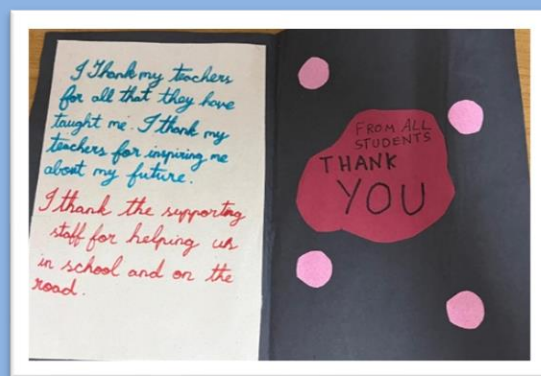 I Thank my teachers
for all that they have
taught me. I thank my
teachers for inspiring me
about my future.
I thank the supporting
staff for helping us
in school and on the
road.
FROM ALL
STUDENTS
THANK
YOU